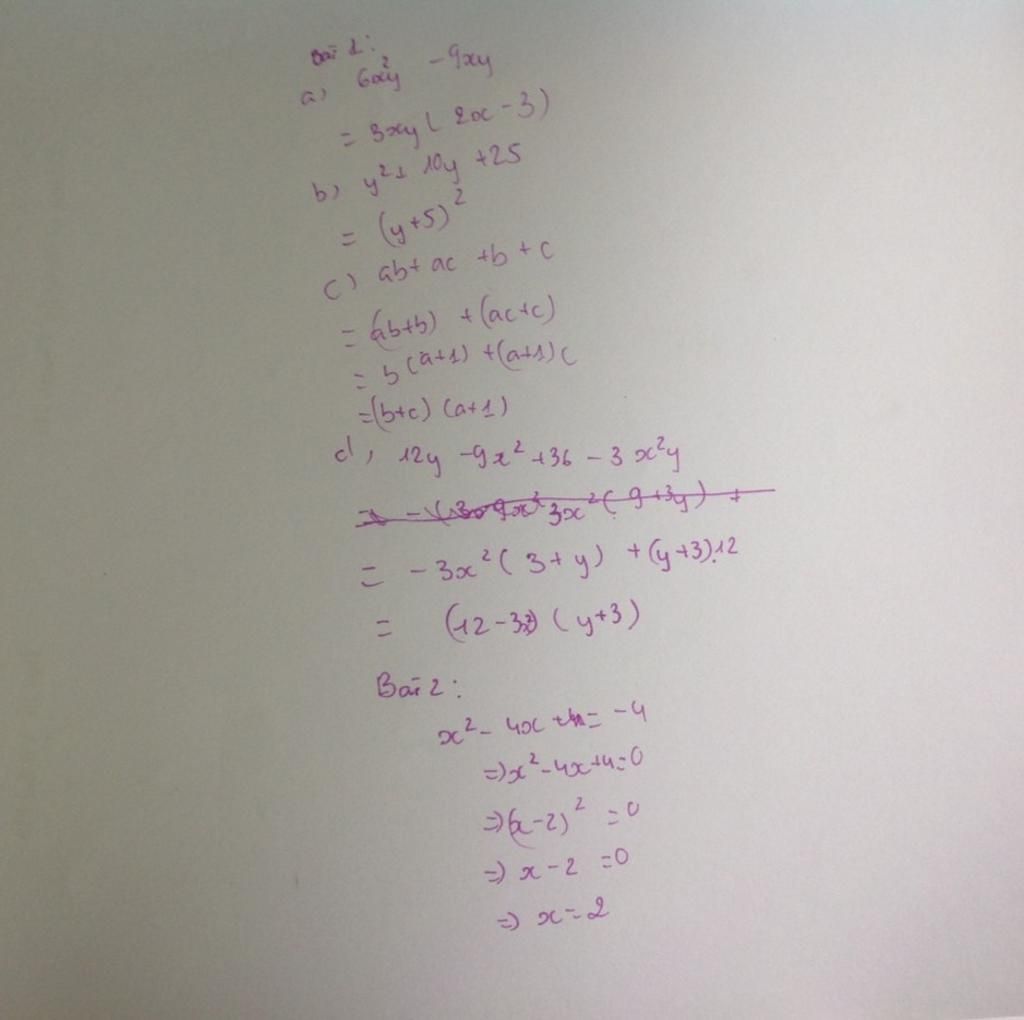 Bài 1:
a) 6x²y - 9xy
= 3xy ( 2x - 3)
b) y² + 10y + 25
= (y+5)²
c) ab + ac + b + c
= (ab+b) + (ac+c)
= b (a+1) + (a+1) c
= (b+c) (a+1)
d) 12y - 9x² + 36 - 3x²y
= - 3x² ( 3 + y) + (y+3).12
= (12 - 3x²) ( y+3)
Bài 2:
x² - 4x = -4
=> x² - 4x + 4 = 0
=> (x - 2)² = 0
=> x - 2 = 0
=> x = 2